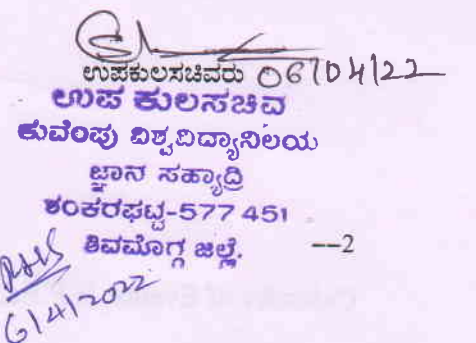 ಉಪಕುಲಸಚಿವರು 06/04/22
ಉಪ ಕುಲಸಚಿವ
ಕುವೆಂಪು ವಿಶ್ವವಿದ್ಯಾನಿಲಯ
ಜ್ಞಾನ ಸಹ್ಯಾದ್ರಿ
ಶಂಕರಘಟ್ಟ-577 451
ಶಿವಮೊಗ್ಗ ಜಿಲ್ಲೆ. --2
6/4/2022